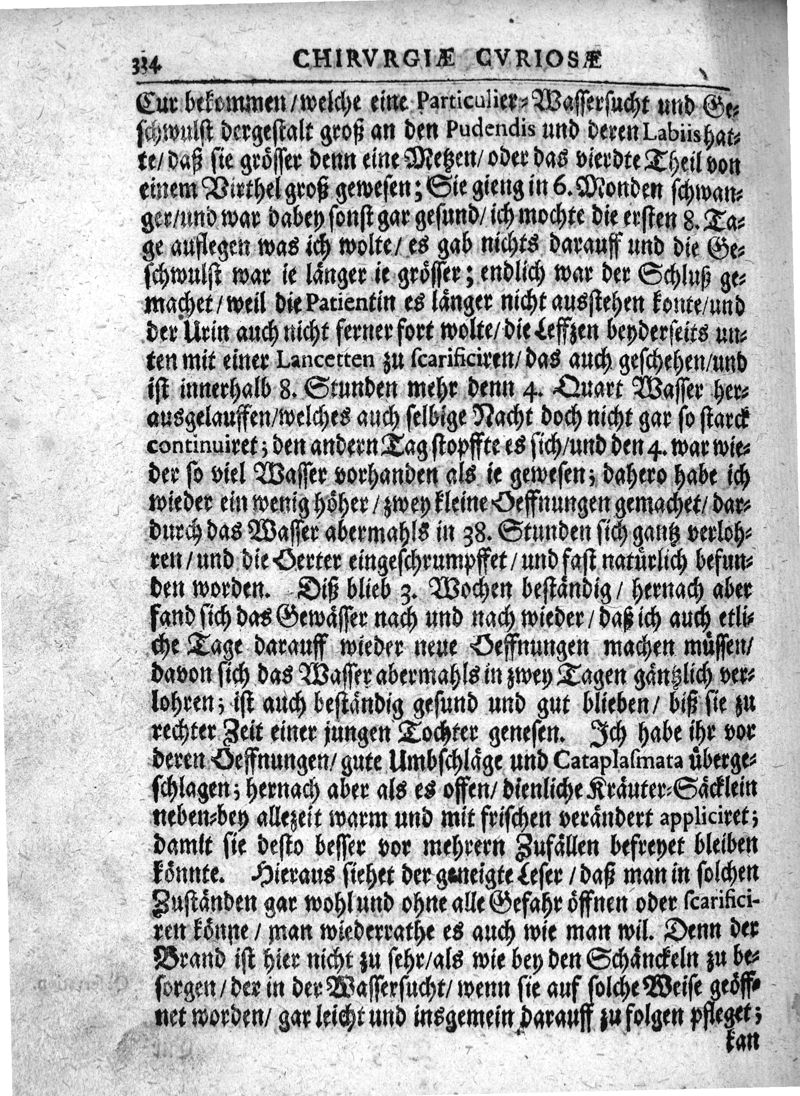 334 CHIRVRGIÆ CVRIOSÆ
Cur bekommen/welche eine Particulier-Wassersucht und Ge-
schwulst dergestalt groß an den Pudendis und deren Labiis hat-
te/daß sie grösser denn eine Metzen/ oder das vierdte Theil von
einem Virthel groß gewesen; Sie gieng in 6. Monden schwan-
ger/und war dabey sonst gar gesund/ ich mochte die ersten 8. Ta-
ge auflegen was ich wolte/ es gab nichts darauff und die Ge-
schwulst war ie länger ie grösser; endlich war der Schluß ge-
machet/weil die Patientin es länger nicht ausstehen konte/und
der Urin auch nicht ferner fort wolte/die Leffzen beyderseits un-
ten mit einer Lancetten zu scarificiren/das auch geschehen/und
ist innerhalb 8. Stunden mehr denn 4. Quart Wasser her-
ausgelauffen/welches auch selbige Nacht doch nicht gar so starck
continuiret; den andern Tag stopffte es sich/und den 4. war wie-
der so viel Wasser vorhanden als ie gewesen; dahero habe ich
wieder ein wenig höher/zwey kleine Oeffnungen gemachet/dar-
durch das Wasser abermahls in 38. Stunden sich gantz verloh-
ren/und die Oerter eingeschrumpffet/und fast natürlich befun-
den worden. Diß blieb 3. Wochen beständig/ hernach aber
fand sich das Gewässer nach und nach wieder/daß ich auch etli-
che Tage darauff wieder neue Oeffnungen machen müssen/
davon sich das Wasser abermahls in zwey Tagen gäntzlich ver-
lohren; ist auch beständig gesund und gut blieben/ biß sie zu
rechter Zeit einer jungen Tochter genesen. Ich habe ihr vor
deren Oeffnungen/gute Umbschläge und Cataplasmata überge-
schlagen; hernach aber als es offen/dienliche Kräuter-Säcklein
neben-bey allezeit warm und mit frischen verändert appliciret;
damit sie desto besser vor mehrern Zufällen befreyet bleiben
könnte. Hieraus siehet der geneigte Leser/daß man in solchen
Zuständen gar wohl und ohne alle Gefahr öffnen oder scarifici-
ren könne/ man wiederrathe es auch wie man wil. Denn der
Brand ist hier nicht zu sehr/als wie bey den Schänckeln zu be-
sorgen/der in der Wassersucht/wenn sie auf solche Weise geöff-
net worden/ gar leicht und insgemein darauff zu folgen pfleget;
kan